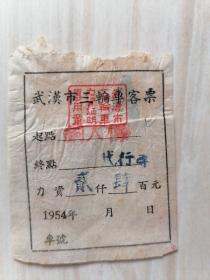 武漢市三輪車客票
起點
終點 代行車
力資 貳仟肆百元
1954年 月 日
車號